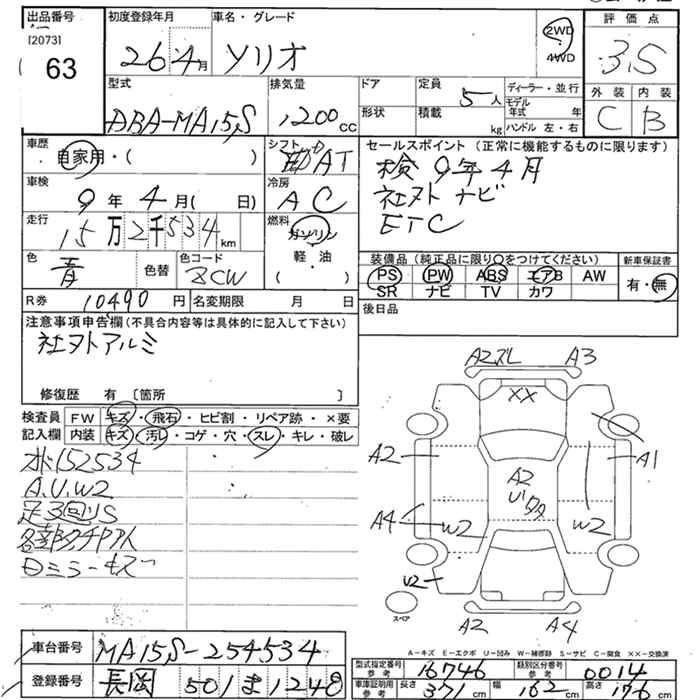 出品番号
[2073]
63
初度登録年月
26 4月
車名・グレード
ソリオ
2WD
4WD
評価点
3.5
外装 内装
C B
型式
ABA-MA15S
排気量
1200 CC
ドア
形状
定員
5人
積載
kg
ディーラー・並行
モデル年式 年
ハンドル 左・右
車歴
自家用・( )
シフト
AT
セールスポイント (正常に機能するものに限ります)
検 9年4月
社外ナビ
ETC
車検
9年4月( 日)
冷房
AC
走行
15万2千534km
燃料
ガソリン
軽・油
( )
色
青
色替
色コード
ZCW
装備品 (純正品に限り○をつけてください)
新車保証書
PS PW ABS エアB AW
有・無
SR ナビ TV カワ
R券 10490円
名変期限 月 日
後日品
注意事項申告欄(不具合内容等は具体的に記入して下さい)
社外アルミ
修復歴 有 〔箇所 〕
検査員
記入欄
FW キズ・飛石・ヒビ割・リペア跡・×要
内装 キズ・汚レ・コゲ・穴・スレ・キレ・破レ
152534
A.U.W2
Dミラーキズ
A2ズレ A3
XX
A2
A1
A2
A4
W2
W2
U2
スペア
A2 A4
A-キズ E-エクボ U-凹み W-補修跡 S-サビ C-腐食 ××-交換済
車台番号
MA15S-254534
登録番号
長岡 501ま1248
型式指定番号
参考
16746
類別区分番号
参考
0014
車庫証明用
参考
長さ 371cm 幅 162cm 高さ 176cm